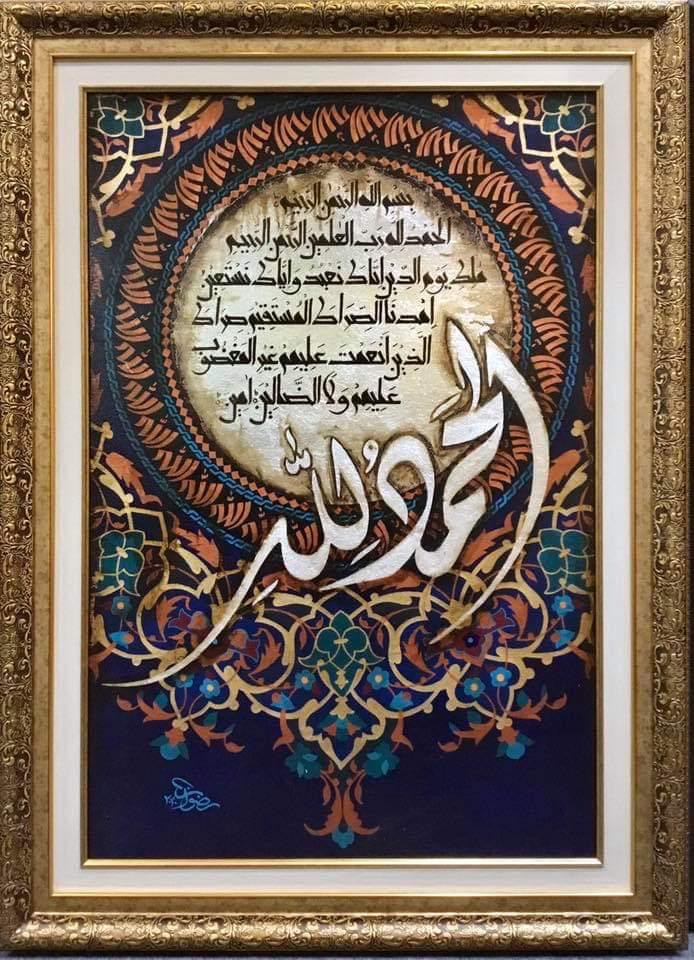 بِسْمِ اللهِ الرَّحْمٰنِ الرَّحِيْمِ
الحَمْدُ لله رَبِّ العٰلَمِيْنَ الرَّحْمٰنِ الرَّحِيْمِ
مٰلِكِ يَوْمِ الدِّيْنِ اِيَّاكَ نَعْبُدُ وَاِيَّاكَ نَسْتَعِيْنُ
اهْدِنَا الصِّرَاطَ المُسْتَقِيْمَ صِرَاطَ
الَّذِيْنَ اَنْعَمْتَ عَلَيْهِمْ غَيْرِ المَغْضُوْبِ
عَلَيْهِمْ وَلَا الضَّالِّيْنَ اٰمِيْن
الحمدُ لِلّٰهِ
رضوان